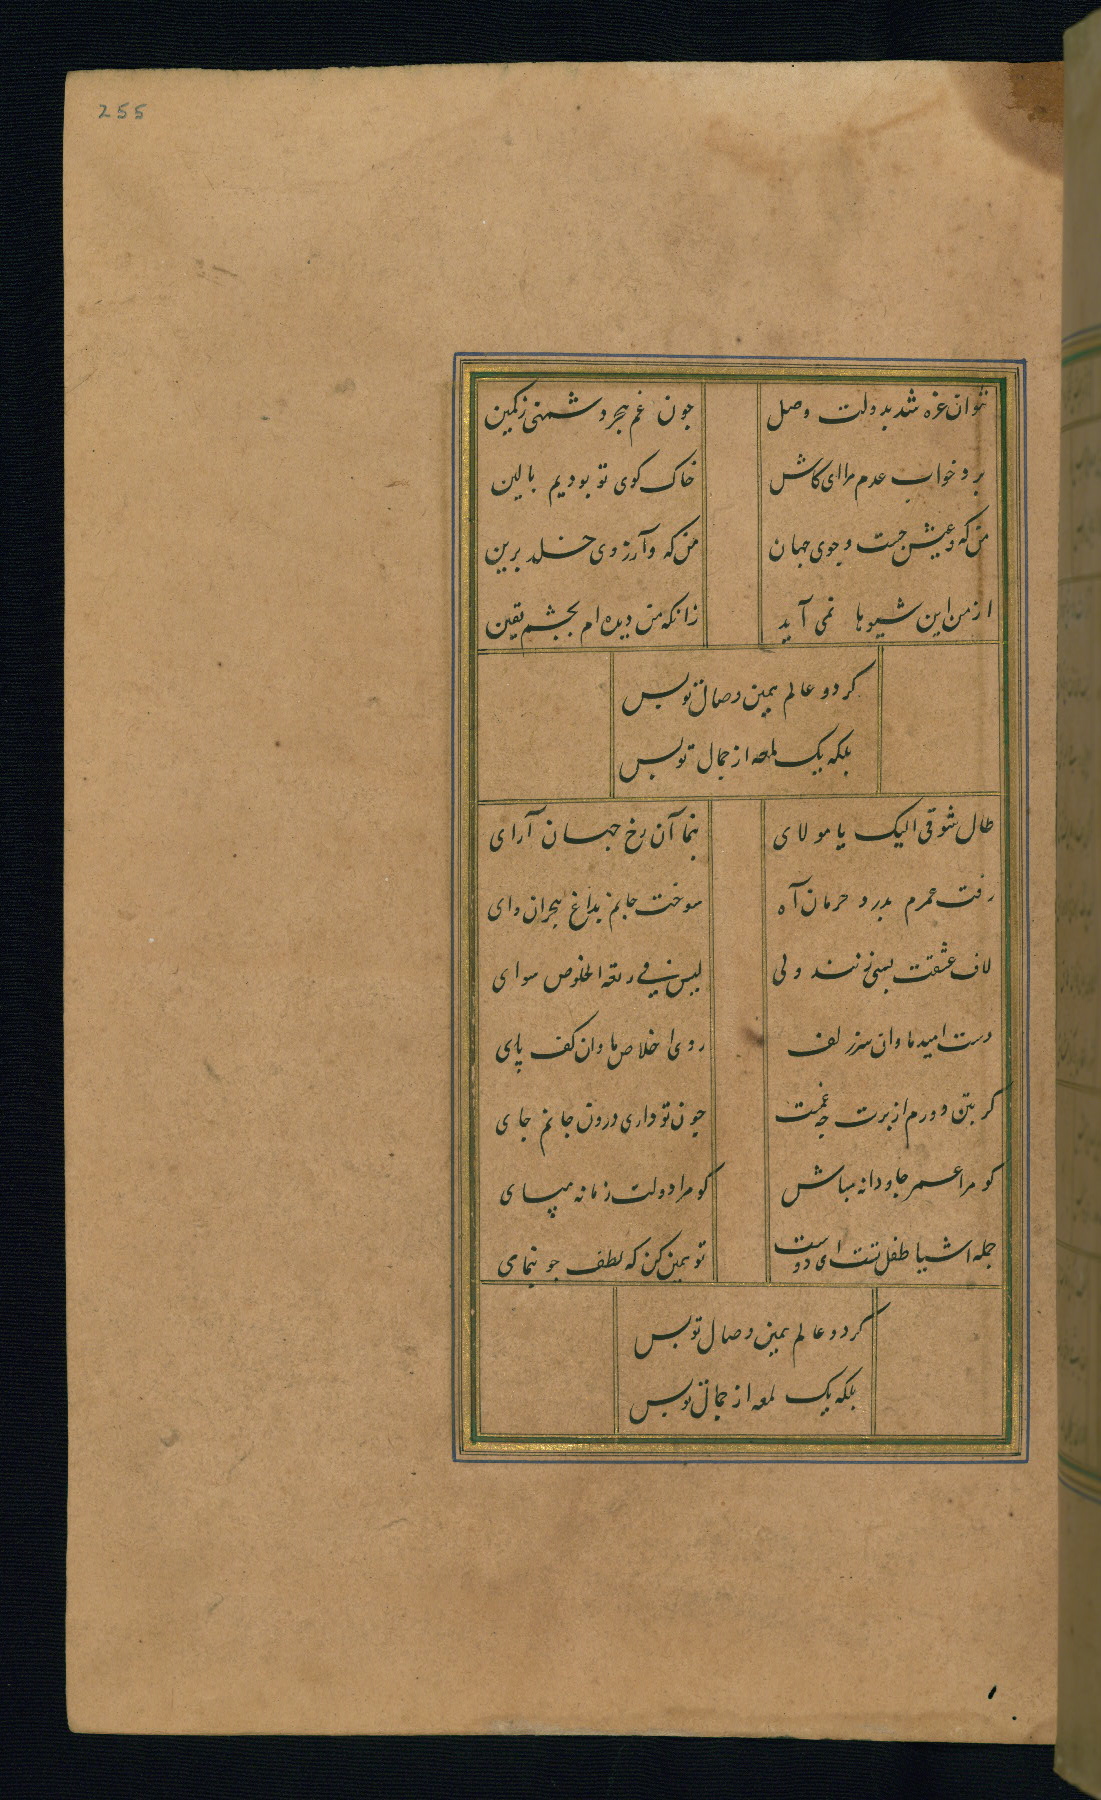 255
نتوان غره شد بدولت وصل چون غم هجر دشمنی ز کمین
برد خواب عدم مرا ای کاش خاک کوی تو بودیم بالین
من که و عیش جست و جوی جهان من که و آرزوی خلد برین
از من این شیوها نمی آید زانکه من دیده ام بچشم یقین
کز دو عالم همین وصال تو بس
بلکه یک لمعه از جمال تو بس
طال شوقی الیک یا مولای بنما آن رخ جهان آرای
رفت عمرم بدرد حرمان آه سوخت جانم بداغ هجران وای
لاف عشقت بسی زنند ولی لیس فی ربقة الخلوص سوای
دست امید ما وان سر زلف روی اخلاص ما وان کف پای
گر بتن دورم از برت چه غمست چون تو داری درون جانم جای
کو مرا عمر جاودانه مباش کو مرا دولت زمانه مپای
جمله اشیا طفیل تست ای دوست تو همین کن که لطف جو بنمای
کز دو عالم همین وصال تو بس
بلکه یک لمعه از جمال تو بس